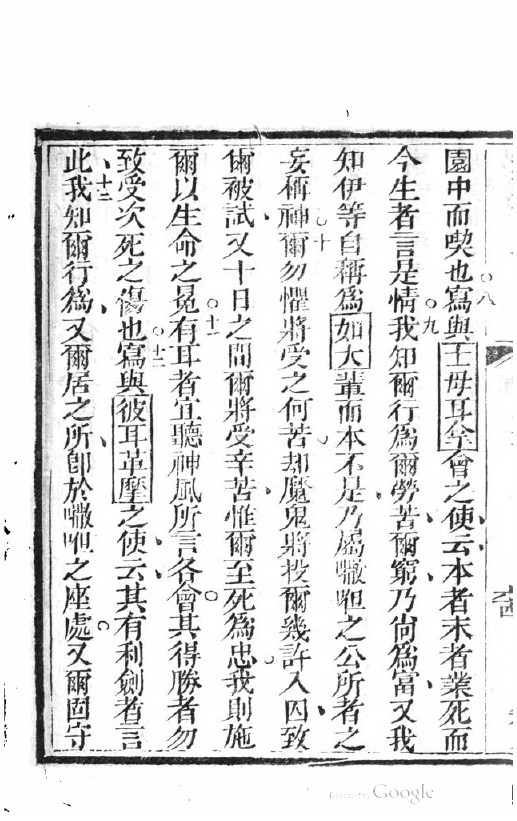 園中而喫也八寫與士母耳拿會之使云本者末者業死而
今生者言是情九我知爾行爲爾勞苦爾窮乃尚爲富又我
知伊等自稱爲如大輩而本不是乃屬㘔呾之公所者之
妄稱神十爾勿懼將受之何苦却魔鬼將投爾幾許入囚致
爾被試又十日之間爾將受辛苦惟爾至死爲忠我則施
爾以生命之冕十一有耳者宜聽神風所言各會其得勝者勿
致受次死之傷也十二寫與彼耳革壓之使云其有利劍者言
此十三我知爾行爲又爾居之所卽於㘔呾之座處又爾固守
Google